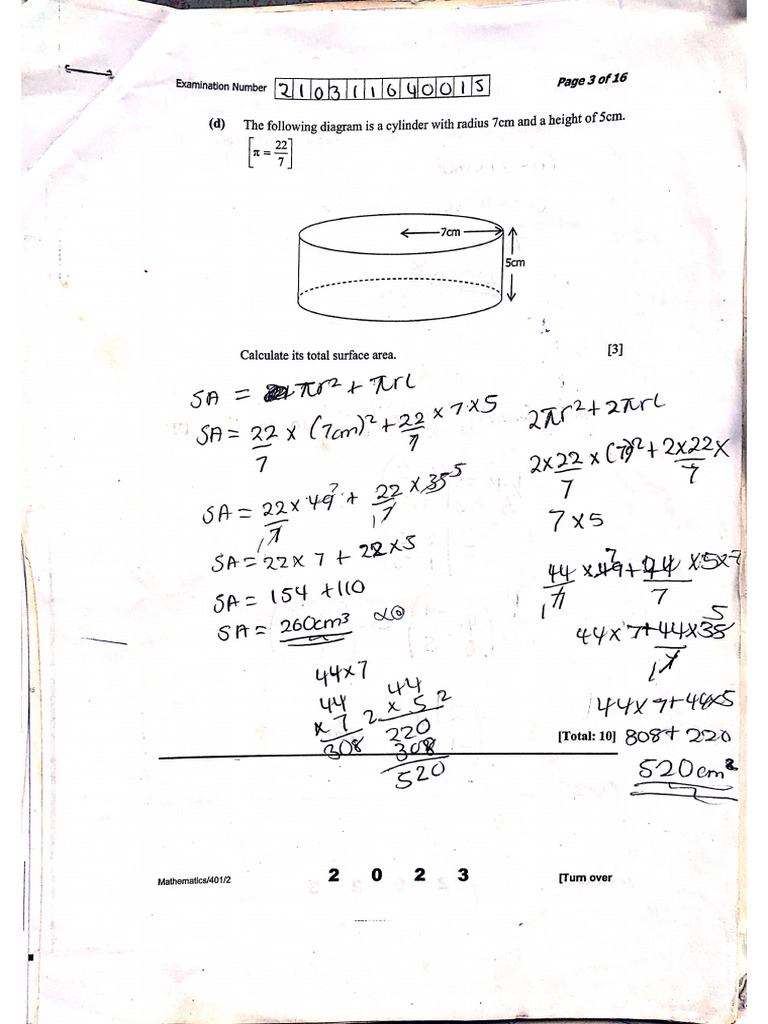 Examination Number 210311640015 Page 3 of 16
(d) The following diagram is a cylinder with radius 7cm and a height of 5cm.
[π = 22/7]
7cm
5cm
Calculate its total surface area. [3]
SA = πr² + πrl
SA = 22/7 × (7cm)² + 22/7 × 7 × 5
SA = 22/7 × 49 7 + 22/7 × 35 5
SA = 22 × 7 + 22 × 5
SA = 154 + 110
SA = 260cm³
44 × 7
44
× 7 2
308
44
× 5 2
220
308
520
2πr² + 2πrl
2 × 22/7 × (7)² + 2 × 22/7 ×
7 × 5
44/7 × 49 7 + 44/7 × 5 × 7
44 × 7 + 44 × 35 5
7
44 × 7 + 44 × 5
[Total: 10] 808 + 220
520cm²
Mathematics/401/2 2 0 2 3 [Turn over